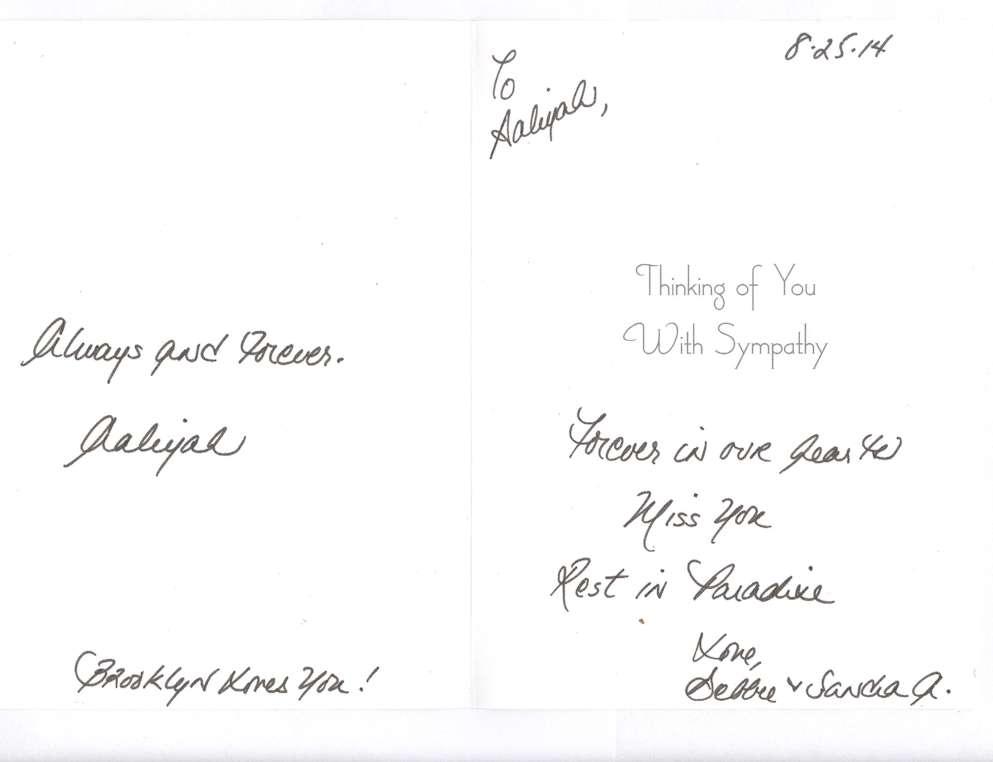 Always and Forever.
Aaliyah
Brooklyn Loves You!
8.25.14
To
Aaliyah,
Thinking of You
With Sympathy
Forever in our hearts
Miss You
Rest in Paradise
Love,
Debbie & Sandra A.